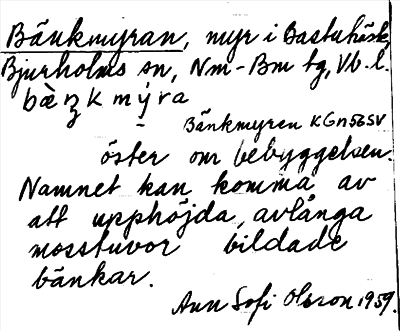 Bänkmyran, myr i Bastuhösk
Bjurholms sn, Nm-Bm tg, Vb. l.
bæ̀ŋk mýra
Bänkmyren KGn56SV
öster om bebyggelsen.
Namnet kan komma av
att upphöjda, avlånga
mosstuvor bildade
bänkar.
Ann Sofi Olsson 1959.